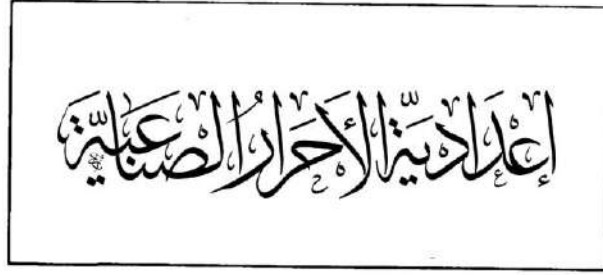 إعْدَادِيَّة الأحْرَارُ الصِّنَاعَيَّة